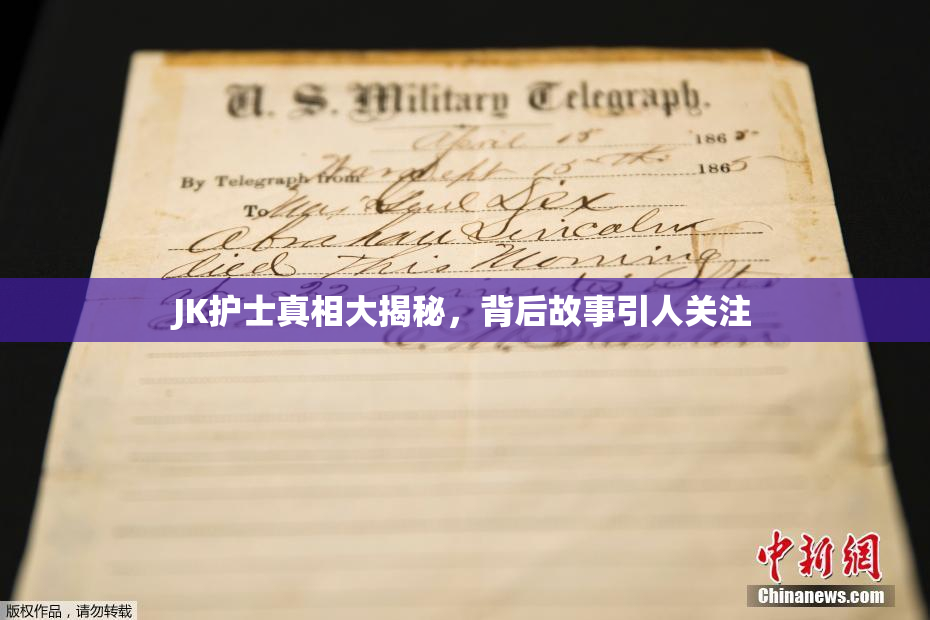 U. S. Military Telegraph.
April 15 1865
By Telegraph from War Dept 15th 1865
To Maj Genl Dix
Abraham Lincoln
died This Morning
at 22 minutes after
JK护士真相大揭秘，背后故事引人关注
E. M. Stanton
中新网
Chinanews.com
版权作品，请勿转载